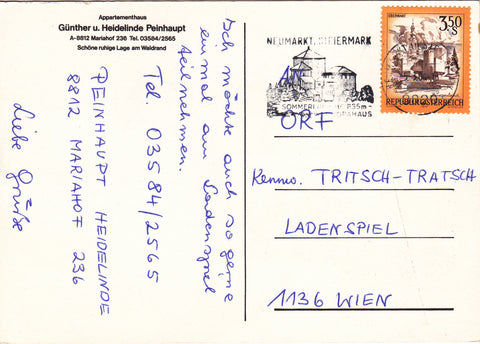 Appartementhaus
Günther u. Heidelinde Peinhaupt
A-8812 Mariahof 236 Tel. 03584/2565
Schöne ruhige Lage am Waldrand
Ich möchte auch so gerne
einmal am Ladenspiel
teilnehmen.
Tel. 03584/2565
PEINHAUPT HEIDELINDE
8812 MARIAHOF 236
Liebe Grüße
NEUMARKT, STEIERMARK
SOMMER
3.50
S
REPUBLIK ÖSTERREICH
AN
ORF
Kennw. TRITSCH-TRATSCH
LADENSPIEL
1136 WIEN